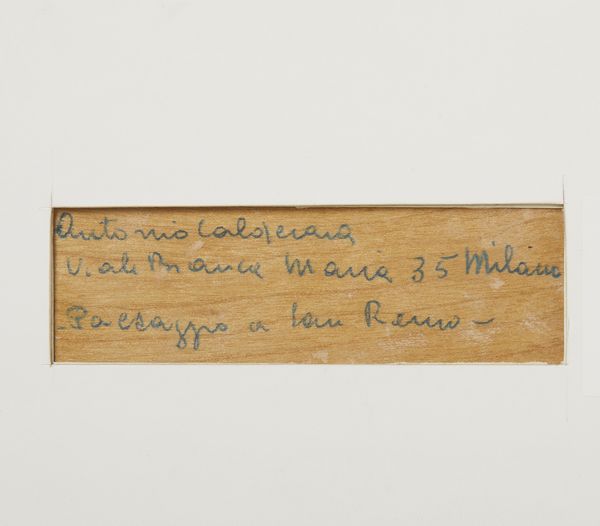 Antonio Calderara
V.ale Bianca Maria 35 Milano
- Paesaggio a San Remo -